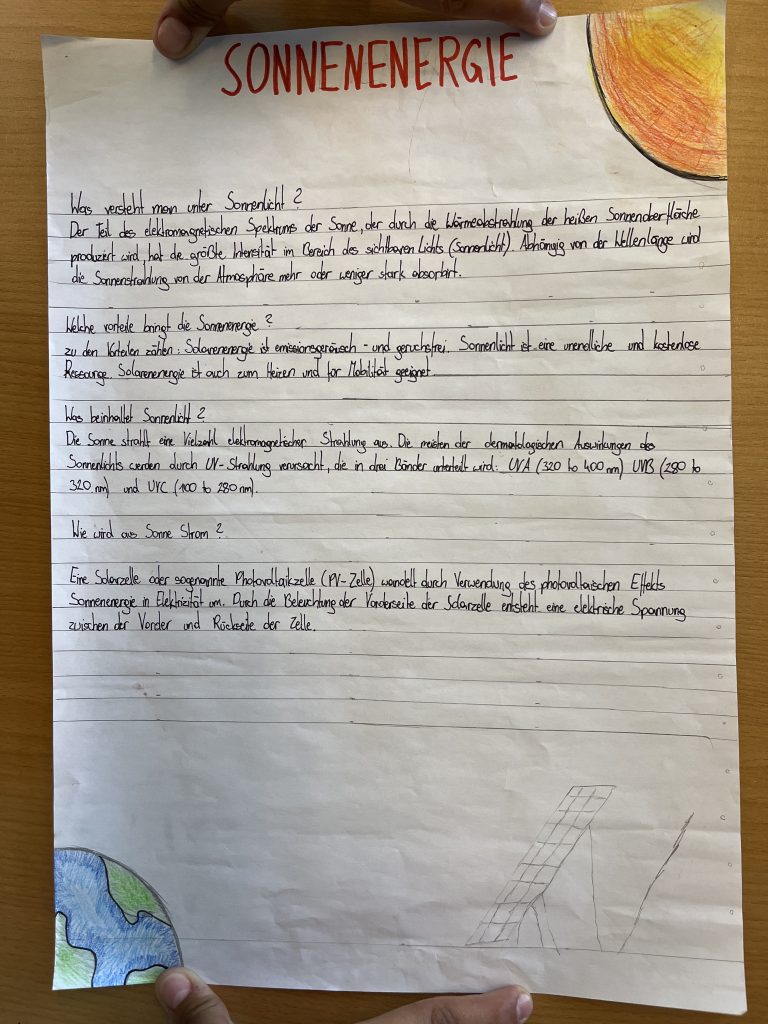 SONNENENERGIE
Was versteht man unter Sonnenlicht?
Der Teil des elektromagnetischen Spektrums der Sonne, der durch die Wärmeabstrahlung der heißen Sonnenoberfläche
produziert wird, hat die größte Intensität im Bereich des sichtbaren Lichts (Sonnenlicht). Abhängig von der Wellenlänge wird
die Sonnenstrahlung von der Atmosphäre mehr oder weniger stark absorbirt.
Welche vorteile bringt die Sonnenenergie?
zu den Vorteilen zählen: Solarenenergie ist emissionsgeräusch- und geruchsfrei. Sonnenlicht ist eine unendliche und kostenlose
Ressourge. Solarenenergie ist auch zum Heizen und for Mobilität geeignet.
Was beinhaltet Sonnenlicht?
Die Sonne strahlt eine Vielzahl elektromagnetischer Strahlung aus. Die meisten der dermatologischen Auswirkungen des
Sonnenlichts werden durch UV-Strahlung verursacht, die in drei Bänder unterteilt wird: UVA (320 to 400 nm) UVB (280 to
320 nm) und UVC (100 to 280 nm).
Wie wird aus Sonne Strom?
Eine Solarzelle oder sogenannte Photovoltaikzelle (PV-Zelle) wandelt durch Verwendung des photovoltaischen Effekts
Sonnenenergie in Elektrizität um. Durch die Beleuchtung der Vorderseite der Solarzelle entsteht eine elektrische Spannung
zwischen der Vorder und Rückseite der Zelle.